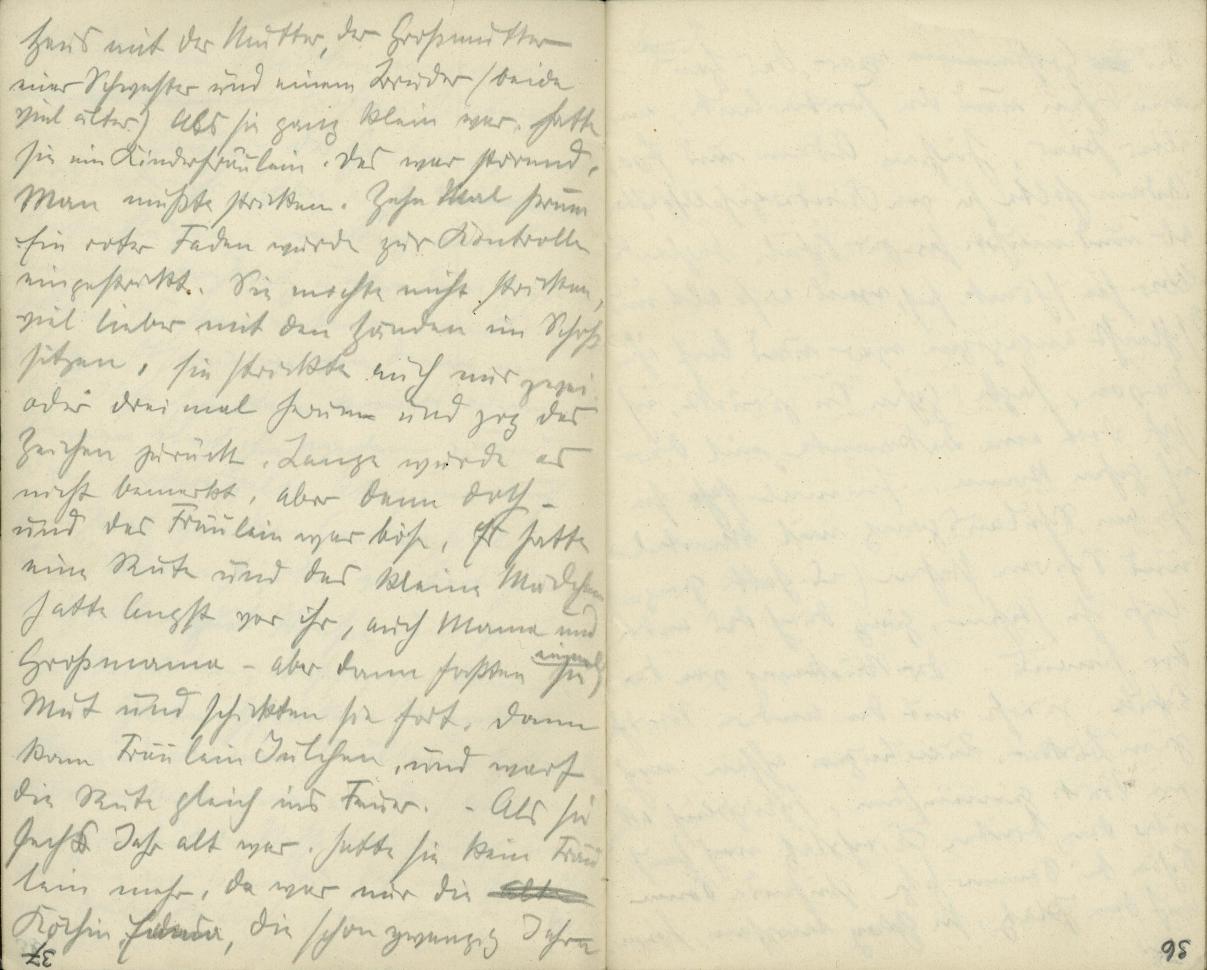 Haus mit der Mutter, der Großmutter
einer Schwester und einem Bruder (beide
viel älter) Als sie ganz klein war, hatte
sie ein Kinderfräulein. Das war störend,
Man mußte stricken. Zehn Mal herum
Ein roter Faden wurde zur Kontrolle
eingestrickt. Sie mochte nicht stricken,
viel lieber mit den Händen im Schoß
sitzen, sie strickte auch nur zwei
oder drei mal herum und zog das
Zeichen zurück. Lange wurde es
nicht bemerkt, aber dann doch –
und das Fräulein war böse, Es hatte
eine Rute und das kleine Mädchen
hatte Angst vor ihr, auch Mama und
Großmama – aber dann faßten sie einmal
Mut und schickten sie fort. Dann
kam Fräulein Julchen, und warf
die Rute gleich ins Feuer. – Als sie
sechs Jahr alt war, hatte sie kein Fräu
lein mehr, da war nur die alte
Köchin, die schon zwanzig Jahre
37
36